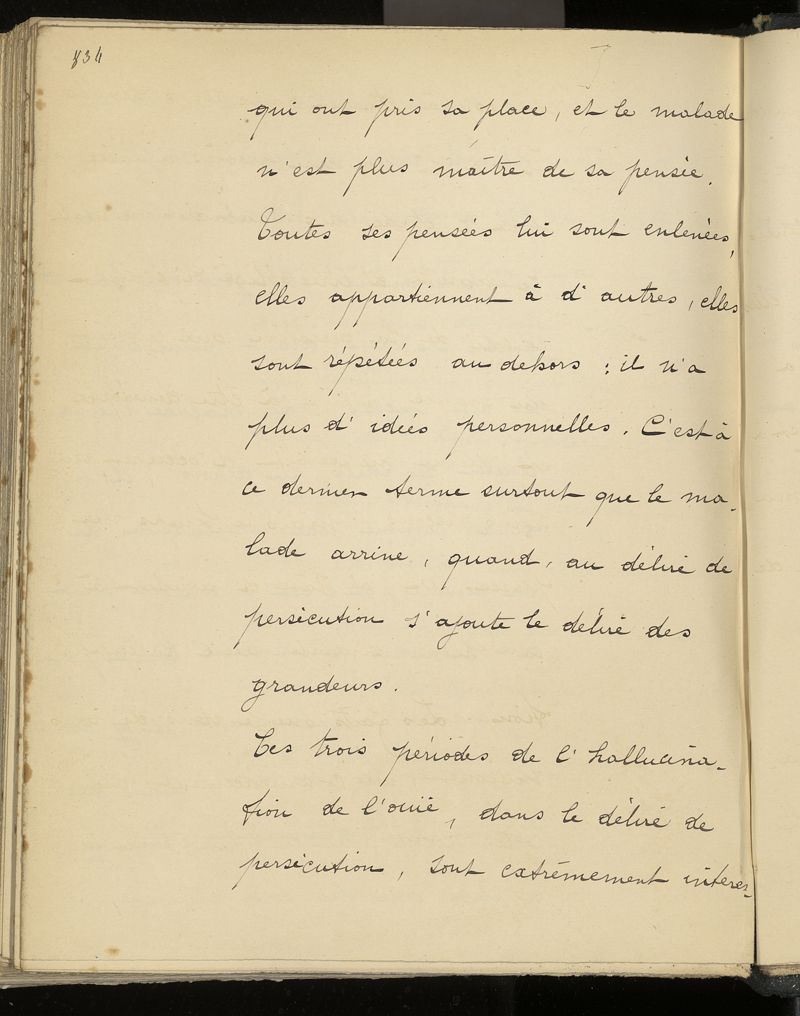 834
qui ont pris sa place, et le malade
n'est plus maître de sa pensée.
Toutes ses pensées lui sont enlevées,
elles appartiennent à d'autres, elles
sont répétées au dehors : il n'a
plus d'idées personnelles. C'est à
ce dernier terme surtout que le ma-
lade arrive, quand, au délire de
persécution s'ajoute le délire des
grandeurs.
Ces trois périodes de l'hallucina-
tion de l'ouïe, dans le délire de
persécution, sont extrêmement intéres-